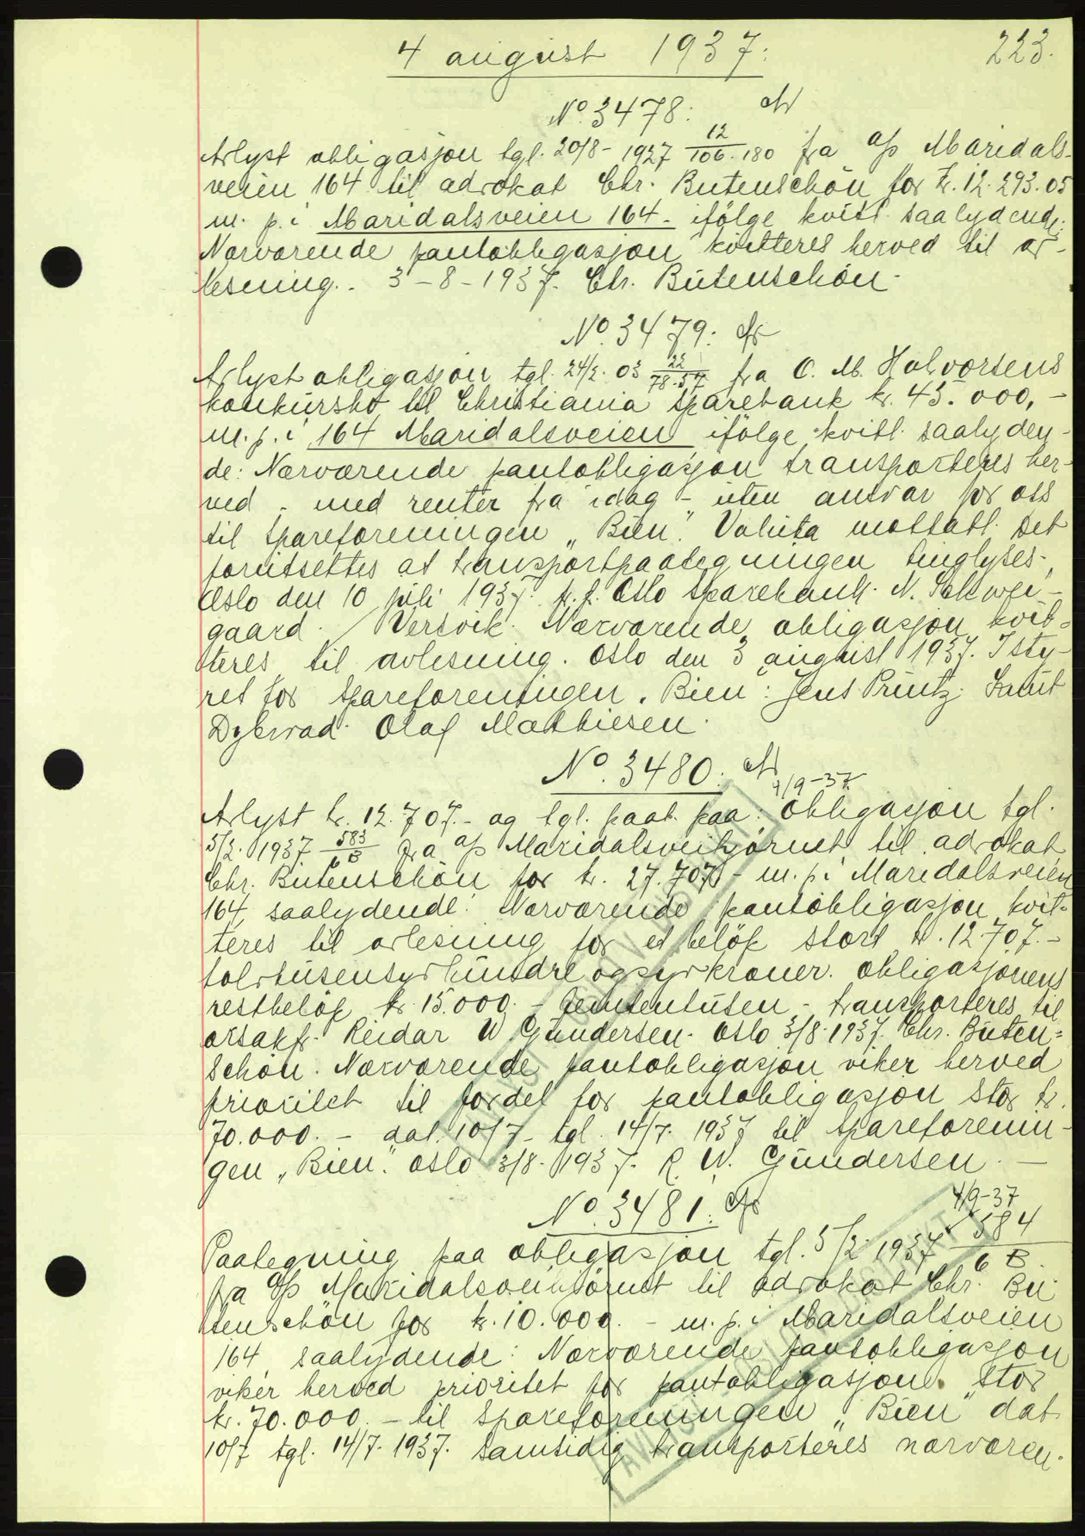 4 august 1937:
223.
No. 3478:
Avlyst obligasjon tgl. 20/8-1927 12/106.180 fra A/S Maridals-
veien 164 til advokat Chr. Butenschön for kr. 12.293.05
m. p. i Maridalsveien 164. ifölge kvitt. saalydende:
Nærværende pantobligasjon kvitteres herved til av-
lesning. 3-8-1937. Chr. Butenschön.
No. 3479:
Avlyst obligasjon tgl. 24/2. 03 fra O. M. Halvorsens
konkursbo til Christiania Sparebank kr. 45.000,-
m. p. i 164 Maridalsveien ifölge kvitt. saalyden-
de: Nærværende pantobligasjon transporteres her-
ved - med renter fra idag - uten ansvar for oss
til Spareforeningen „Bien”. Valuta mottatt. Det
forutsettes at transportpaategningen tinglyses.
Oslo den 10 juli 1937. p. p. Oslo Sparebank. N. Schwei-
gaard / Versvik. Nærværende obligasjon kvit-
teres til avlesning. Oslo den 3 august 1937. I sty-
ret for Spareforeningen „Bien”: Jens Printz. Knut
Dybwad. Olaf Mathiesen.
No. 3480:
4/9-37
Avlyst kr. 12.707.- og tgl. paat. paa: Obligasjon tgl.
5/2. 1937 583/6 B fra A/S Maridalsveihjörnet til advokat
Chr. Butenschön for kr. 27.707.- m. p. i Maridalsveien
164, saalydende: Nærværende pantobligasjon kvit-
teres til avlesning for et belöp stort kr. 12.707.-
tolvtusensyvhundre og syv kroner. Obligasjonens
restbelöp kr. 15.000.- femtentusen - transporteres til
o.r.sakf. Reidar W. Gundersen. Oslo 3/8-1937. Chr. Buten-
schön. Nærværende pantobligasjon viker herved
prioritet til fordel for pantobligasjon stor kr.
70.000.- dat. 10/7- tgl. 14/7. 1937 til Spareforenin-
gen „Bien”. Oslo 3/8. 1937. R. W. Gundersen. —
No. 3481:
4/9-37
Paategning paa obligasjon tgl. 5/2. 1937 584/6 B.
fra A/S Maridalsveihjörnet til advokat Chr. Bu-
tenschön for kr. 10.000.- m. p. i Maridalsveien
164, saalydende: Nærværende pantobligasjon
viker herved prioritet for pantobligasjon stor
kr. 70.000.- til Spareforeningen „Bien” dat.
10/7 tgl. 14/7. 1937. Samtidig transporteres nærværen-